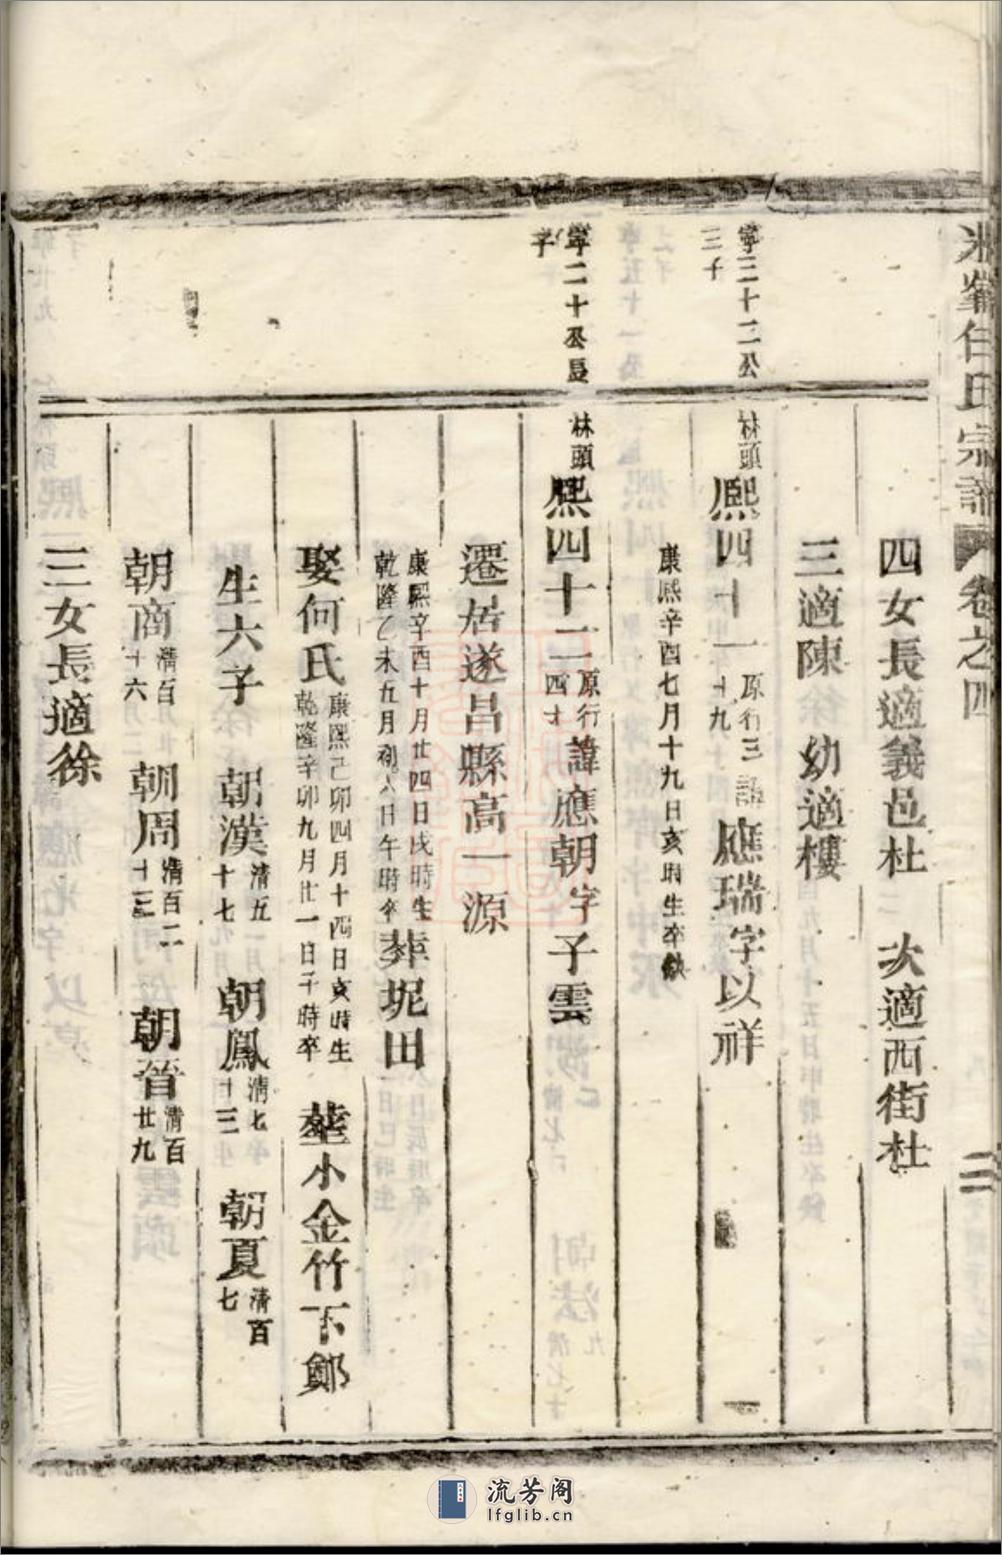 峯任氏宗譜 卷之四 二
四女長適義邑杜 次適西街杜
三適陳 幼適樓
寧三十二公
三子
林頭
熈四十一 原行三 廿九 諱 應瑞字以祥
康熈辛酉七月十九日亥時生卒缺
寧二十公長
子
林頭
熈四十二 原行 四十 諱應朝字子雲
遷居遂昌縣高一源
康熈辛酉十月廿四日戌時生
乾隆乙未五月初八日午時卒 葬坭田
娶何氏 康熙己卯四月十四日亥時生
乾隆辛卯九月廿一日子時卒 塟小金竹下鄭
生六子 朝漢 清五十七 朝鳳 清七十三 朝夏 清百七
朝商 清百十六 朝周 清百二十三 朝晉 清百廿九
三女長適徐
流芳阁
lfglib.cn